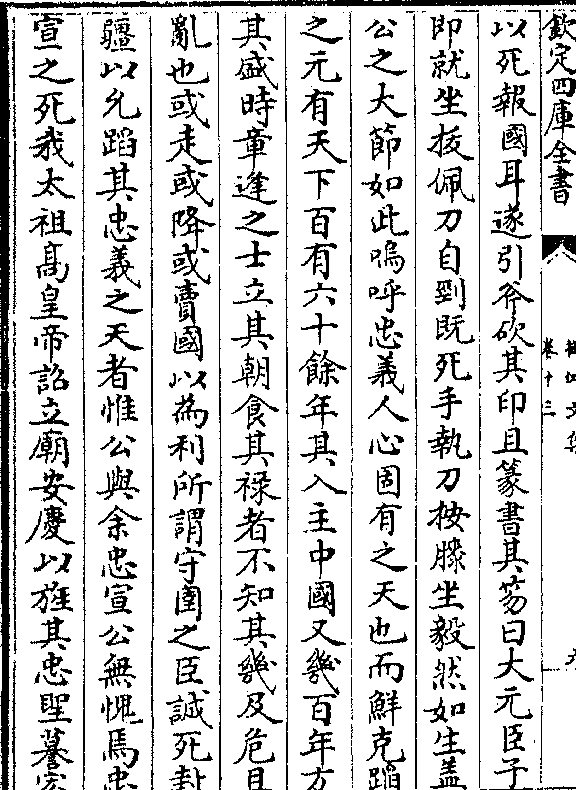 欽定四庫全書
卷十三
以死報國耳遂引斧砍其印且篆書其笏曰大元臣子
即就坐拔佩刀自剄既死手執刀按膝坐毅然如生蓋
公之大節如此嗚呼忠義人心固有之天也而鮮克蹈
之元有天下百有六十餘年其入主中國又幾百年方
其盛時章逢之士立其朝食其祿者不知其幾及危且
亂也或走或降或賣國以為利所謂守圉之臣誠死封
疆以允蹈其忠義之天者惟公與余忠宣公無愧焉忠
宣之死我太祖高皇帝詔立廟安慶以旌其忠聖謩宏